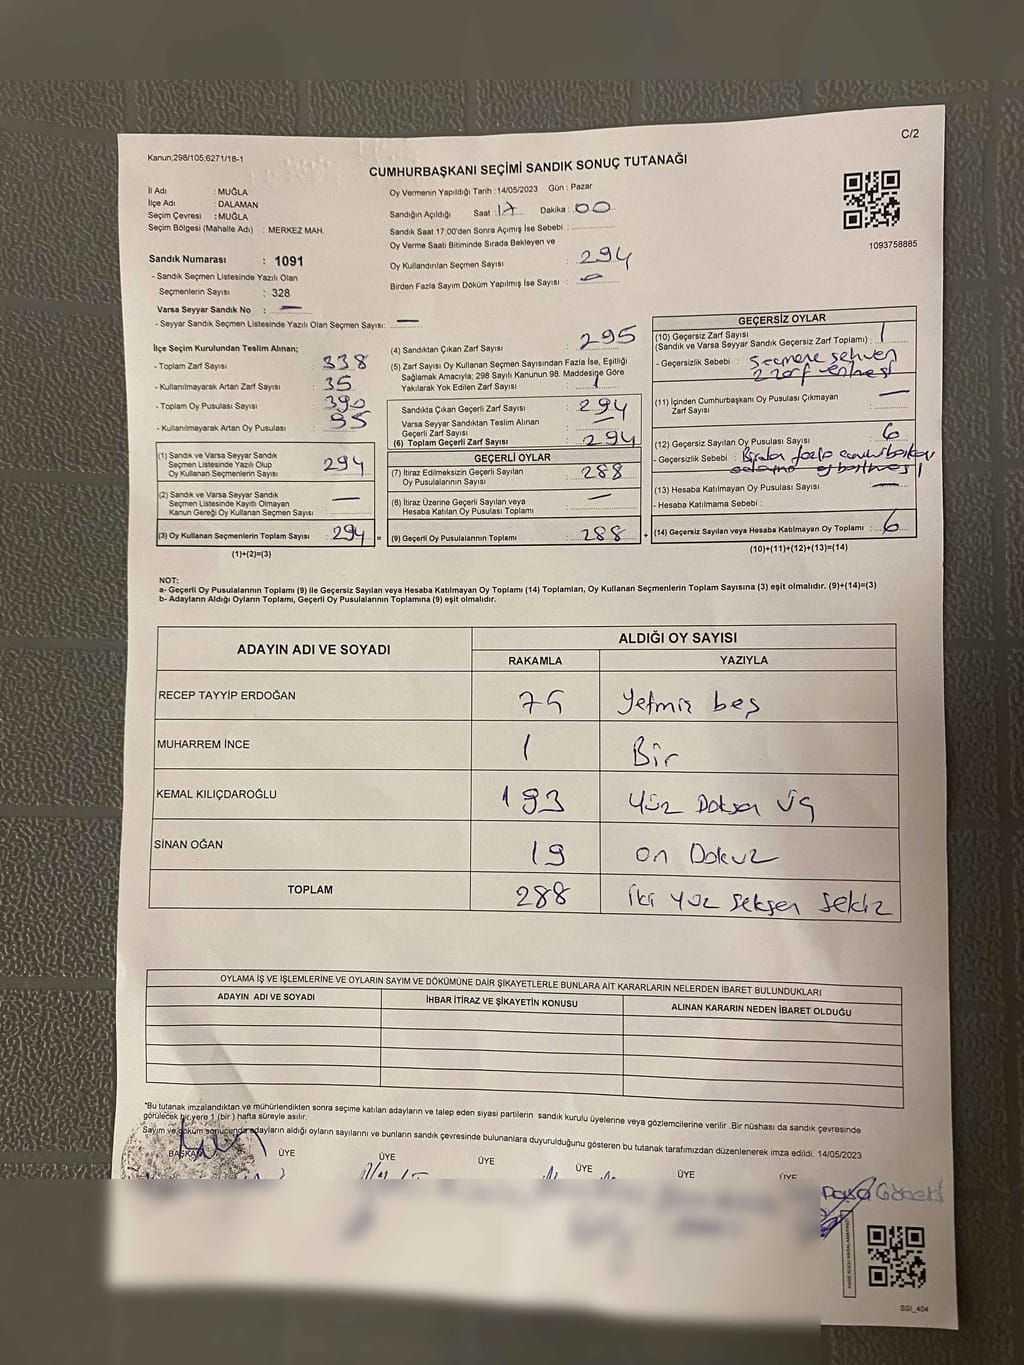 Kanun;298/105;6271/18-1
C/2
CUMHURBAŞKANI SEÇİMİ SANDIK SONUÇ TUTANAĞI
İl Adı : MUĞLA
İlçe Adı : DALAMAN
Seçim Çevresi : MUĞLA
Seçim Bölgesi (Mahalle Adı) : MERKEZ MAH.
Sandık Numarası : 1091
- Sandık Seçmen Listesinde Yazılı Olan
Seçmenlerin Sayısı : 328
Varsa Seyyar Sandık No : —
- Seyyar Sandık Seçmen Listesinde Yazılı Olan Seçmen Sayısı: —
Oy Vermenin Yapıldığı Tarih : 14/05/2023 Gün : Pazar
Sandığın Açıldığı Saat : 17 Dakika : 00
Sandık Saat 17:00'den Sonra Açımış İse Sebebi :
Oy Verme Saati Bitiminde Sırada Bekleyen ve
Oy Kullandırılan Seçmen Sayısı : 294
Birden Fazla Sayım Döküm Yapılmış İse Sayısı : —
1093758885
İlçe Seçim Kurulundan Teslim Alınan;
- Toplam Zarf Sayısı : 338
- Kullanılmayarak Artan Zarf Sayısı : 35
- Toplam Oy Pusulası Sayısı : 390
- Kullanılmayarak Artan Oy Pusulası : 95
(1) Sandık ve Varsa Seyyar Sandık
Seçmen Listesinde Yazılı Olup
Oy Kullanan Seçmenlerin Sayısı : 294
(2) Sandık ve Varsa Seyyar Sandık
Seçmen Listesinde Kayıtlı Olmayan
Kanun Gereği Oy Kullanan Seçmen Sayısı : —
(3) Oy Kullanan Seçmenlerin Toplam Sayısı : 294 =
(1)+(2)=(3)
(4) Sandıktan Çıkan Zarf Sayısı : 295
(5) Zarf Sayısı Oy Kullanan Seçmen Sayısından Fazla İse, Eşitliği
Sağlamak Amacıyla; 298 Sayılı Kanunun 98. Maddesine Göre
Yakılarak Yok Edilen Zarf Sayısı : 1
Sandıkta Çıkan Geçerli Zarf Sayısı : 294
Varsa Seyyar Sandıktan Teslim Alınan
Geçerli Zarf Sayısı : —
(6) Toplam Geçerli Zarf Sayısı : 294
GEÇERLİ OYLAR
(7) İtiraz Edilmeksizin Geçerli Sayılan
Oy Pusulalarının Sayısı : 288
(8) İtiraz Üzerine Geçerli Sayılan veya
Hesaba Katılan Oy Pusulası Toplamı : —
(9) Geçerli Oy Pusulalarının Toplamı : 288 +
GEÇERSİZ OYLAR
(10) Geçersiz Zarf Sayısı
(Sandık ve Varsa Seyyar Sandık Geçersiz Zarf Toplamı) : 1
- Geçersizlik Sebebi : Seçmene sehven
2 zarf verilmesi
(11) İçinden Cumhurbaşkanı Oy Pusulası Çıkmayan
Zarf Sayısı : —
(12) Geçersiz Sayılan Oy Pusulası Sayısı : 6
- Geçersizlik Sebebi : Birden fazla cumhurbaşkanı
adayına
(13) Hesaba Katılmayan Oy Pusulası Sayısı : —
- Hesaba Katılmama Sebebi :
(14) Geçersiz Sayılan veya Hesaba Katılmayan Oy Toplamı : 6
(10)+(11)+(12)+(13)=(14)
NOT:
a- Geçerli Oy Pusulalarının Toplamı (9) ile Geçersiz Sayılan veya Hesaba Katılmayan Oy Toplamı (14) Toplamları, Oy Kullanan Seçmenlerin Toplam Sayısına (3) eşit olmalıdır. (9)+(14)=(3)
b- Adayların Aldığı Oyların Toplamı, Geçerli Oy Pusulalarının Toplamına (9) eşit olmalıdır.
ADAYIN ADI VE SOYADI
ALDIĞI OY SAYISI
RAKAMLA YAZIYLA
RECEP TAYYİP ERDOĞAN 75 Yetmiş beş
MUHARREM İNCE 1 Bir
KEMAL KILIÇDAROĞLU 193 Yüz Doksan Üç
SİNAN OĞAN 19 On Dokuz
TOPLAM 288 İki Yüz Seksen Sekiz
OYLAMA İŞ VE İŞLEMLERİNE VE OYLARIN SAYIM VE DÖKÜMÜNE DAİR ŞİKAYETLERLE BUNLARA AİT KARARLARIN NELERDEN İBARET BULUNDUKLARI
ADAYIN ADI VE SOYADI İHBAR İTİRAZ VE ŞİKAYETİN KONUSU ALINAN KARARIN NEDEN İBARET OLDUĞU
*Bu tutanak imzalandıktan ve mühürlendikten sonra seçime katılan adayların ve talep eden siyasi partilerin sandık kurulu üyelerine veya gözlemcilerine verilir. Bir nüshası da sandık çevresinde
görülecek bir yere 1 (bir) hafta süreyle asılır.
Sayım ve döküm sonucunda adayların aldığı oyların sayılarını ve bunların sandık çevresinde bulunanlara duyurulduğunu gösteren bu tutanak tarafımızdan düzenlenerek imza edildi. 14/05/2023
BAŞKAN ÜYE ÜYE ÜYE ÜYE ÜYE ÜYE
SSI_404